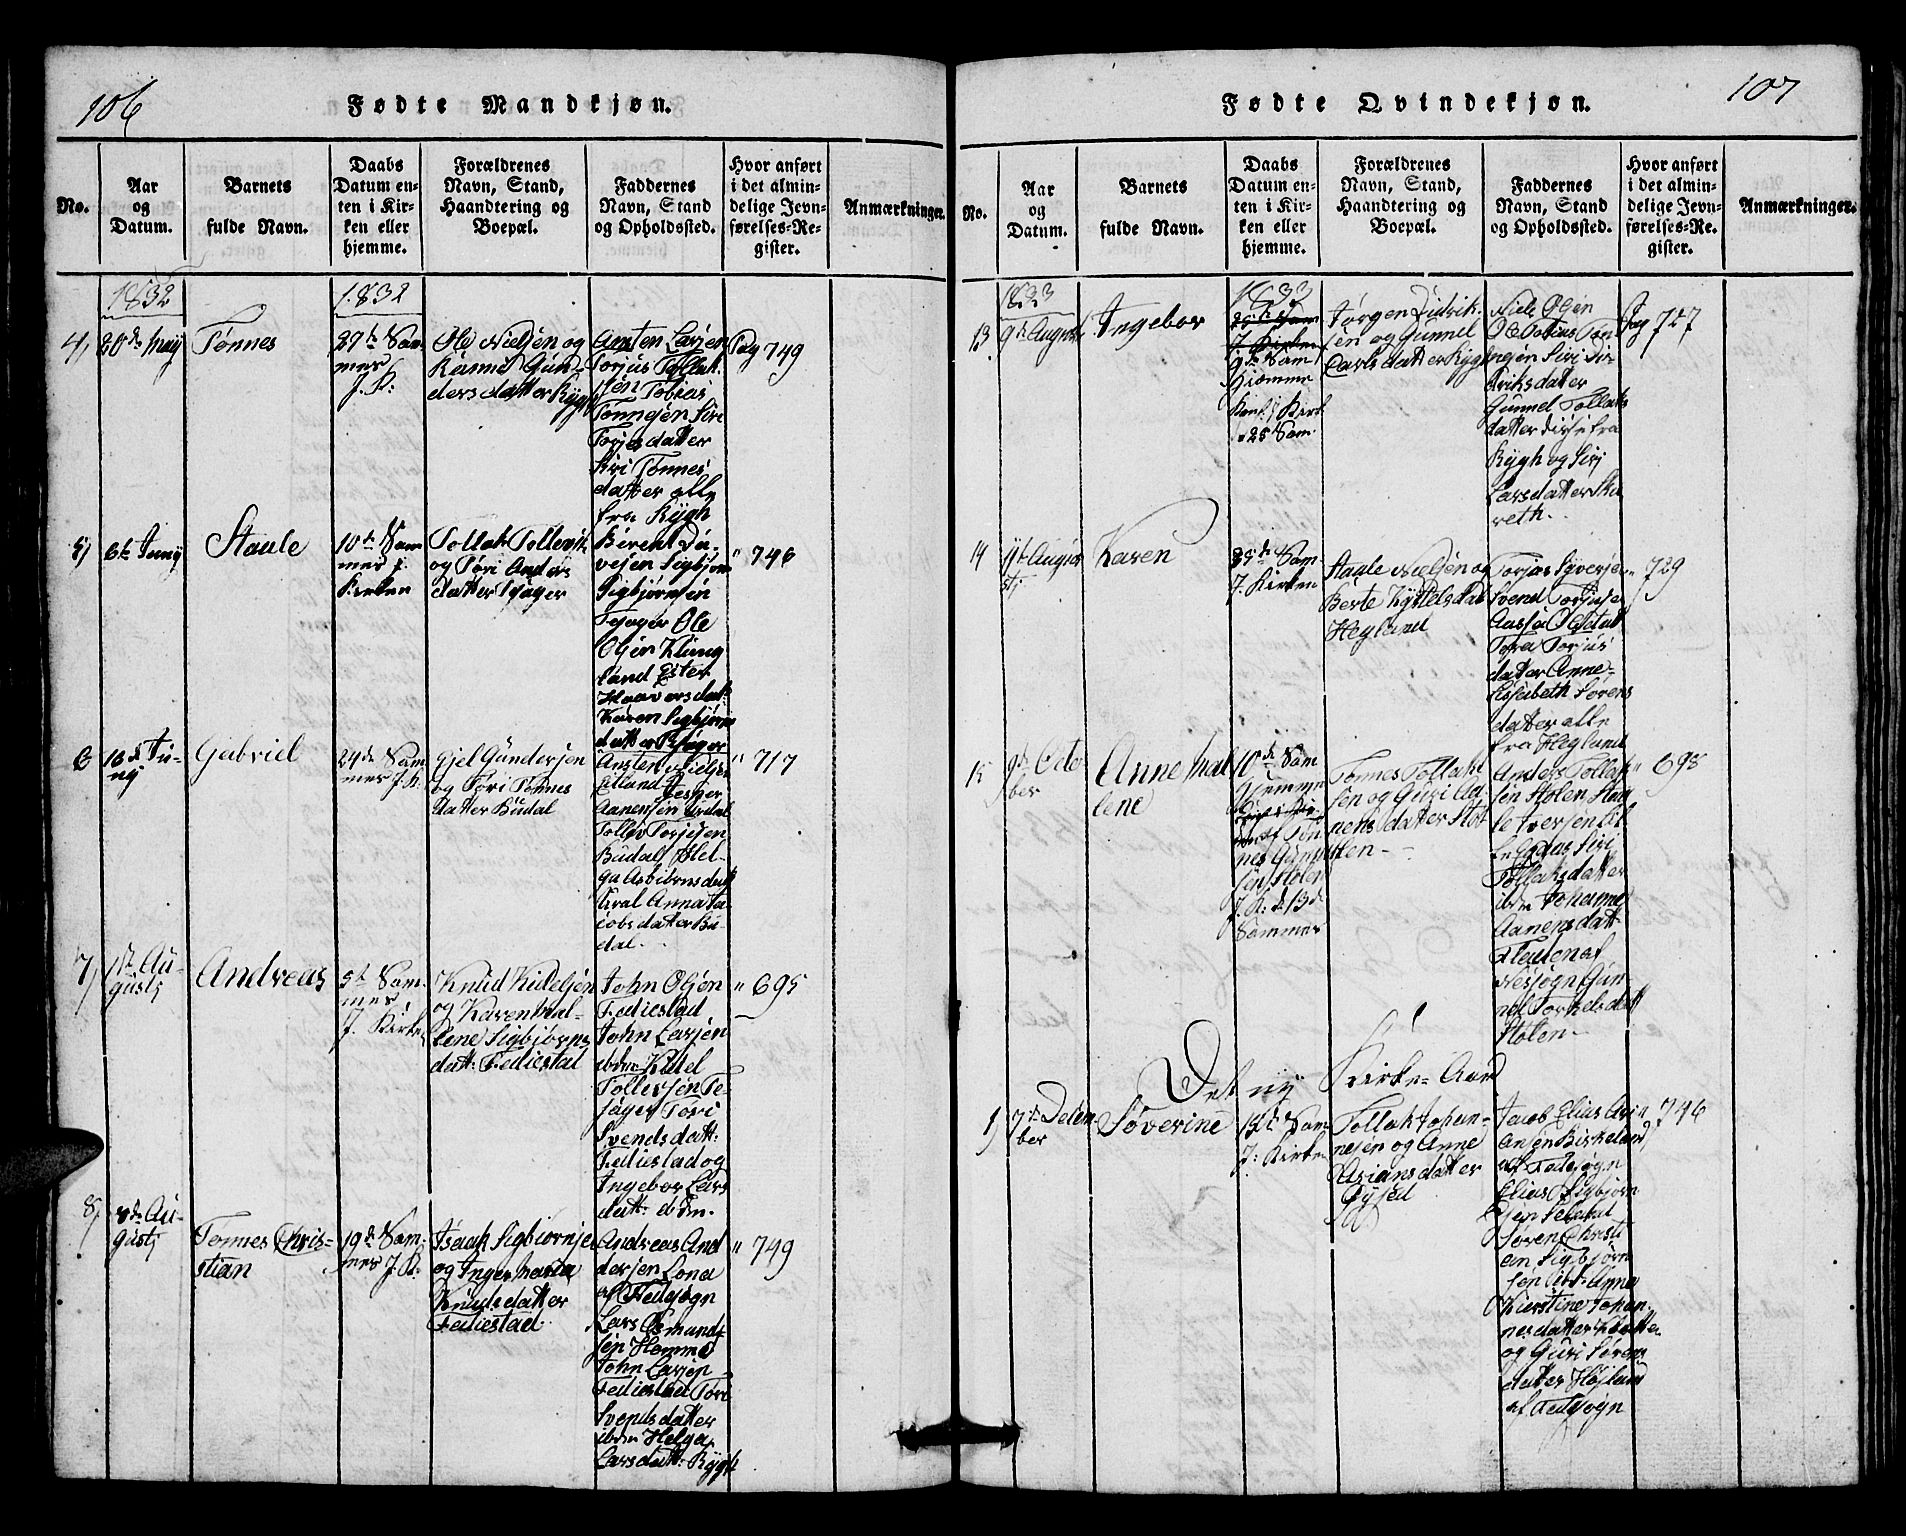 106
Fødte Mandkjøn.
No.
Aar
og
Datum.
Barnets
fulde Navn.
Daabs
Datum en-
ten i Kir-
ken eller
hjemme.
Forældrenes
Navn, Stand,
Haandtering og
Boepæl.
Faddernes
Navn, Stand
og Opholdssted.
Hvor anført
i det almin-
delige Jevn-
førelses-Re-
gister.
Anmærkninger.
1832
1832
4)
20de May
Tønnes
27de Søm
mer
J. K:
Ole Nielsen og
Gun-
ders datter Rygh
Ansten Larsen
Torjus Tollak
sen Tobias
Tønnesen Siri
Torjesdatter
Siri Tønnes
datter alle
fra Rygh
Pag 749
5)
6te Juny
Staale
10de Søm
mer J.
Kirken
Tollak Tollevsen
og Tøri Anders
datter Tjøger
Berent
Sigbjørn
Sigbjørnsen
Tjøger Ole
Olsen Klung
land Ester
Haaversdatt:
Karen Sigbjørns
datter Tjøger
" 746
6
10de Ju-
ny
Gabriel
24de Søm
mer J. K:
Gjel Gundersen
og Tøri Tønnes
datter Budal
Ansten Nielsen
Eiland Jesper
Aanensen Årdal
Tollev Torjesen
Budal Hel-
ga Asbiörnsdatt
Anna Ja
cobsdatter Bu
dal.
" 717
7)
1de Au-
gusti
Andreas
5te Søm-
mer
J. Kirken
Knud Kidelsen
og Karen Mal-
lene Sigbjørns
datt: Fediestad
John Olsen
Fediestad
John Larsen
ibdm Kidel
Tollevsen Te-
jager Tøri
Svendsdatt:
Fediestad og
Ingebor Lars
datt: ibdm.
" 695
8)
8de Au-
gusti
Tønnes Chris-
stian
19de Søm-
mer J. K:
Isaak Sigbiørnsen
og Inger Maria
Knudsdatter
Fediestad
Andreas And
dersen Lona
af Fedsogn
Lars Osmund-
sen Homme
John Larsen
Fediestad Tøri
Svendsdatter
ibdm Helga
Larsdatt: Rygh
" 749
107
Fødte Qvindekjøn.
No.
Aar
og
Datum.
Barnets
fulde Navn.
Daabs
Datum en-
ten i Kir-
ken eller
hjemme.
Forældrenes
Navn, Stand,
Haandtering og
Boepæl.
Faddernes
Navn, Stand
og Opholdssted.
Hvor anført
i det almin-
delige Jevn-
førelses-Re-
gister.
Anmærkninger.
1833
1833
13
9de August
Ingebor
25de Søm
J. Kirken
9de Søm
Hjemme
Conf. J Kirk
25 Søm
Jørgen Didrik-
sen og Gunnel
Carlsdatter Rygh
Niels Olsen
Tobias Tøn
nesen Siri Di-
driksdatter
Gunnel Tollaks
datter disse fra
Rygh og Siri
Larsdatter Sku
reth.
Pag 727
14
11te Augu
sti
Karen
25de Søm-
J. Kirken
Staale Nielsen og
Berte Kittelsdat
Hegland
Torjus Syversen
Svend Torjusen
Aasja
Tora Torjus
datter Anne-
Elisabeth Sørens
datter alle
fra Hegland
" 729
15
9de Octo
ber
Anne Mal
lene
10de Søm
Hjemme
af Tøn
nes Gunders
sen Stolen
J. K: d. 13de
Sømmer
Tønnes Tollak
sen og Guri Aa-
nensdatter Sto
len -
Anders Tollak
sen Stolen Staa
le Iversen
Siri
Tollaksdatter
ibdm Johanne
Aanensdatt-
Fleden af
Næsogn Gun
nel Torkelsdatt
Stolen -
" 698
Det ny Kirke-Aar
1)
7de Decem-
ber
Søverine
15de Søm
J. Kirken
Tollak Johan-
nesen og Anne
Arians datter
Øysæd
Jacob Elias Ari
ansen Birkeland
af Fedesogn
Elias Sigbjørn
sen
Søren Christi
an Sigbjørn
sen ibd. Anne
Kierstine Johan-
nesdatter
og Guri Sørens
datter Høyland
af Fedsogn
" 746